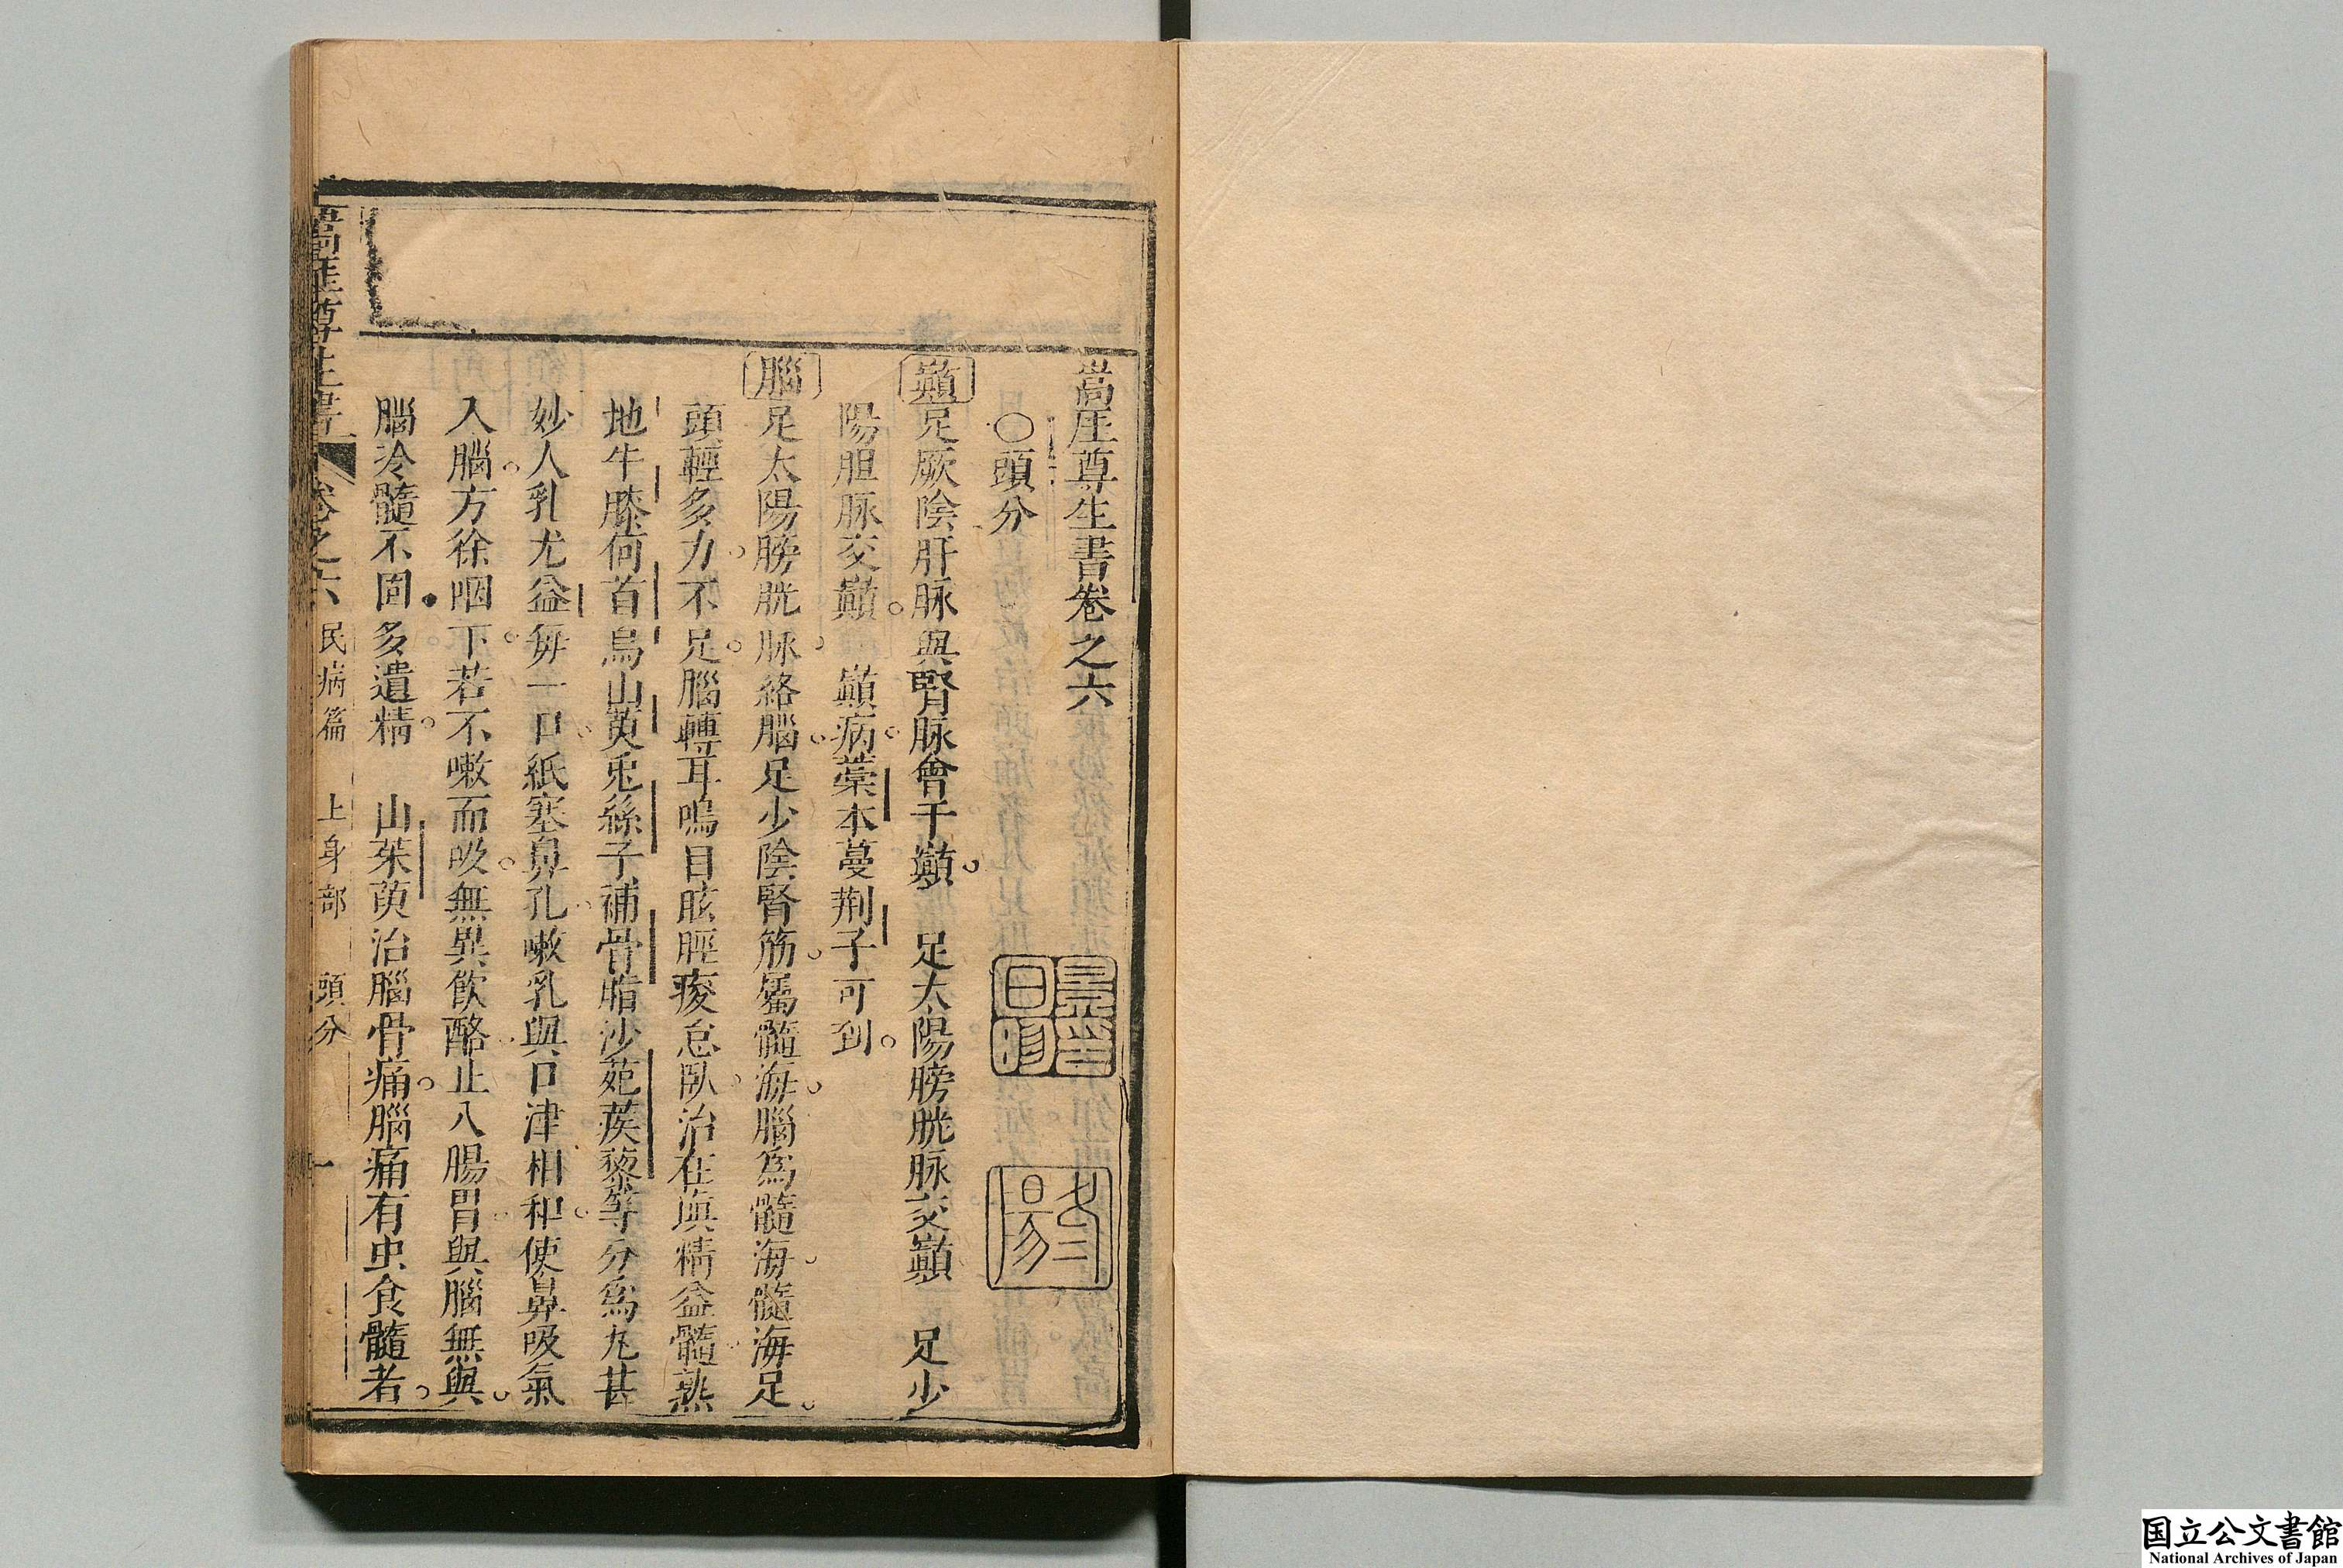 嵩厓尊生書卷之六
〇頭分
巔足厥陰肝脉與腎脉會于巔。 足太陽膀胱脉交巔 足少
陽胆脉交巔。 巔病。藁本蔓荆子可到。
腦足太陽膀胱脉。絡腦。足少陰腎筋。屬髓海。腦爲髓海。髓海足。
頭輕多力。不足。腦轉耳鳴目眩脛痠怠臥。治在塡精益髓。熟
地牛膝何首烏山萸兎絲子補骨脂沙苑蒺藜等分爲丸甚
妙人乳尤益每一口。紙塞鼻孔。嗽乳與口津相和。使鼻吸氣
入腦。方徐咽下。若不嗽而吸。無異飮酪。止入腸胃。與腦無與。
腦冷髓不固。多遺精。 山茱萸治腦骨痛。腦痛有虫食髓者。
嵩厓尊生書 卷之六 民病篇 上身部 頭分 一
国立公文書館
National Archives of Japan